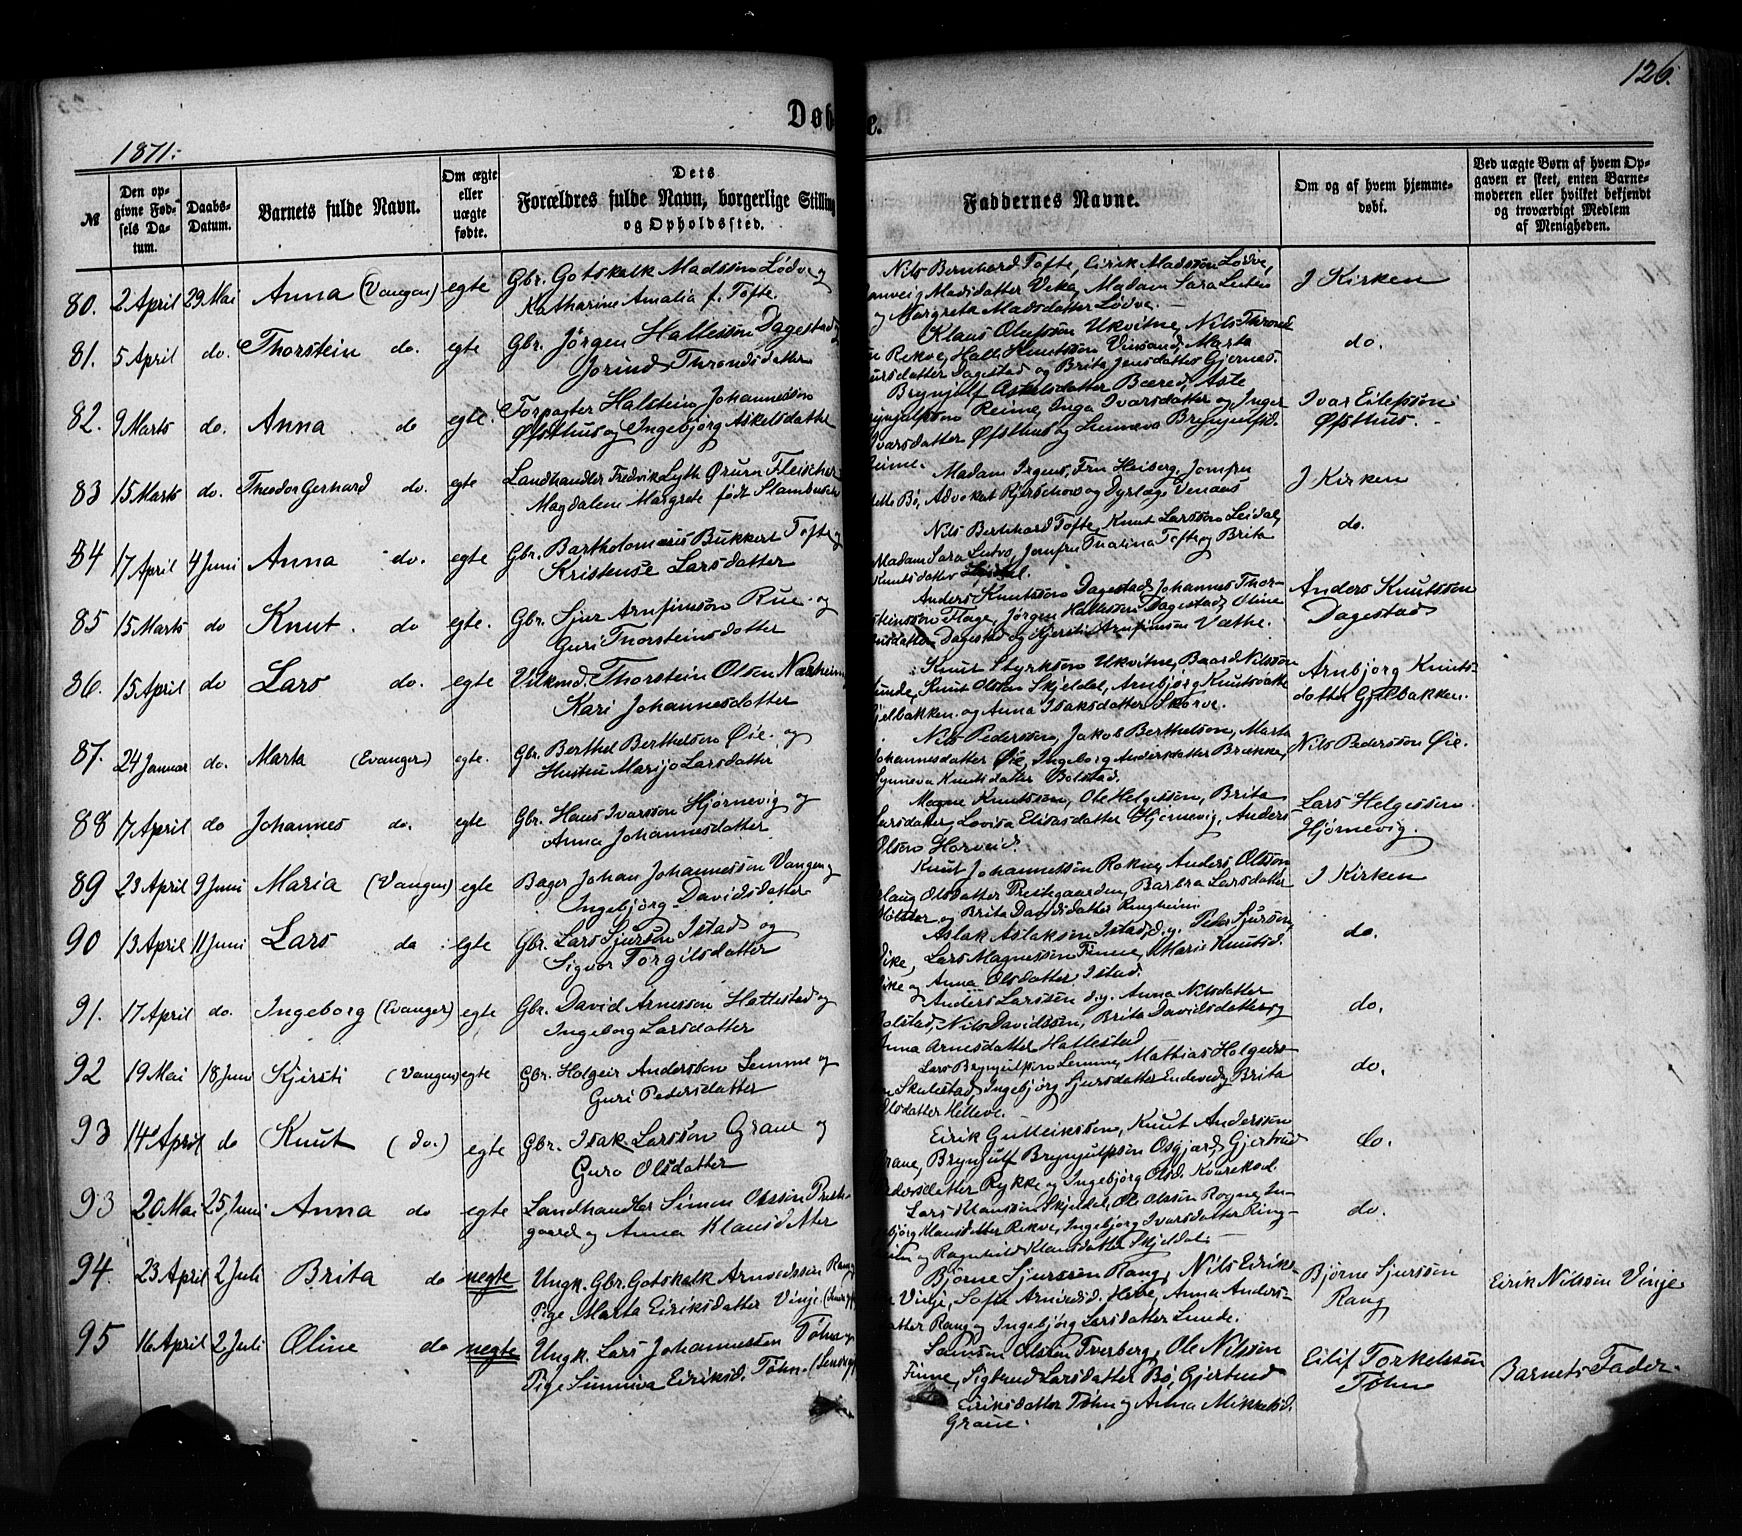 126.
Døbte.
1871.
№
Den opgivne Fødsels Datum.
Daabs-Datum.
Barnets fulde Navn.
Om ægte eller uægte fødte.
Dets Forældres fulde Navn, borgerlige Stilling og Opholdssted.
Faddernes Navne.
Om og af hvem hjemmedøbt.
Ved uægte Børn af hvem Opgaven er skeet, enten Barnemoderen eller hvilket bekjendt og troværdigt Medlem af Menigheden.
80. 2 April 29 Mai Anna (Vangen) egte Gbr. Gotskalk Madssøn Lødve og
Katharine Amalia f. Tofte.
Nils Bernhard Tofte, Eirik Madssøn Lødve,
Madsdatter Veka, Madam Sara
og Margrete Madsdatter Lødve.
J Kirken
81. 5 April do. Thorstein do. egte Gbr. Jörgen Hallessøn Dagestad
Jorind Throndsdatter
Klaus Olufssøn Ukvitne, Nils Thronds
Rekve, Halle Knutssøn Vinsand, Marta
datter Dagestad og Brita Jensdatter Gjernes.
do.
82. 9 Marts do. Anna do egte. Forpagter Halstein Johannessøn
Øfsthus og Ingebjørg Askelsdatter
Brynjulf Askelsdatter Bæred, Aste
Brynjulfssøn Reime, Inga Ivarsdatter og Inger
Ivarsdatter Øfsthus og Sunneva Brynjulfsd.
Reime.
Ivar Eilefssøn
Øfsthus.
83 15 Marts do. Theodor Gerhard do. egte Landhandler Fredrik Lyth Ørum Fleischer
Magdalene Margrete født Stambusen
Madam Irgens, Fru Heiberg, Jomfru
Bö, Advokat og Dyrlæge Venaas
J Kirken
84 17 April 4 Juni Anna do. egte Gbr. Bartholomæus Bukkert Tofte og
Kristense Larsdatter
Nils Bernhard Tofte, Knut Larssøn Leidal,
Madam Sara, Jomfru Thalina Tofte og Brita
Knutsdatter
do.
85 15 Marts do Knut. do egte. Gbr. Sjur Arnfinnsøn Rue og
Guri Thorsteinsdatter
Anders Knutssøn Dagestad, Johannes Thor-
steinssøn Flage, Jörgen Hallessøn Dagestad, Oline
datter Dagestad og Kjersti Arnfinnsøn Væthe.
Anders Knutssøn
Dagestad
86. 15 April do Lars do. egte Thorstein Olsen Nærheim,
Kari Johannesdatter
Knut Styrksøn Ukvitne, Baard Nilssøn
Lunde, Knut Olsen Skjeldal, Arnbjørg Knutsdatter
Gjelbakken og Anna Isaksdatter Skorve.
Arnbjørg Knuts-
datter Gjelbakken.
87. 24 Januar do. Marta (Evanger) egte. Gbr. Berthel Berthelsøn Øie og
Hustru Marijo Larsdatter
Nils Pederssøn, Jakob Berthelsøn, Marta
Johannesdatter Øie, Ingeborg Andersdatter Brække,
Synneva Knutsdatter Bolstad.
Nils Pederssøn Øie.
88 17 April do Johannes do. egte Gbr. Hans Ivarssøn Hjørnevig og
Anna Johannesdatter
Magne Knutssøn, Ole Helgessøn, Brita
Larsdatter, Lovisa Eliasdatter Hjørnevig, Anders
Olsøn Horveid.
Lars Helgessøn
Hjørnevig.
89 23 April 9 Juni Maria (Vangen) egte Bager Johan Johannessøn Vangen og
Ingebjørg Davidsdatter
Knut Johannessøn Rokne, Anders Olssøn
Haug, Olsdatter Prestegaarden, Barbra Larsdatter
og Brita Davidsdatter Ringheim.
J Kirken
90 13 April 11 Juni Lars do egte Gbr. Lars Sjursøn Istad og
Sigvor Torgilsdatter
Aslak Aslaksøn Istad, d.y. Peder Sjursøn,
Lars Magnessøn Finne, Marie Knutsd.
og Anna Olsdatter Istad.
do.
91. 17 April do. Ingeborg (Evanger) egte Gbr. David Arnessøn Hattestad og
Ingeborg Larsdatter
Anders Larssøn d.y. Anna Nilsdatter
Bolstad, Nils Davidssøn, Brita Davidsdatter og
Anna Arnesdatter Hattestad
do.
92 19 Mai 18 Juni Kjirsti (Vangen) egte Gbr. Holgeir Anderssøn Lemme og
Guri Pedersdatter
Lars Brynjulfsøn Lemme, Mathias Holgeirs-
Skulestad, Ingebjørg Sjursdatter Endeved, Brita
Olsdatter Helleve.
do.
93 14 April do Knut (do.) egte Gbr. Isak Larssøn Graue og
Guro Olsdatter
Eirik Gulleikssøn, Knut Anderssøn
Graue, Brynjulf Brynjulfssøn Osgjerd, Gjertrud
Andersdatter Rykke og Ingebjørg Olsd. Kvarekval.
do.
93 20 Mai 25 Juni Anna do egte Landhandler Simon Olssøn Prest-
gaard og Anna Klausdatter
Lars Klaussøn Skjeldal, Ole Olssøn Rogne, In-
gebjørg Klausdatter Rekve, Ingebjørg Ivarsdatter Ring-
heim og Ragnhild Klausdatter Skjeldal.
do.
94. 23 April 2 Juli Brita do uegte Ungk. Gbr. Gotskalk Arnvedssøn Rang og
Pige Marta Eiriksdatter Vinje
Bjørne Sjurssøn Rang, Nils Eiriks-
Vinje, Sofie Arnvedsd. Heve, Anna Anders-
datter Rang og Ingebjørg Larsdatter Lunde.
Bjørne Sjurssøn
Rang
Eirik Nilssøn Vinje
95 16 April 2 Juli Oline do uegte Ungk. Lars Johannessøn Tøhn og
Pige Sunniva Eiriksd. Tøhn
Samson Olssøn Tverberg, Ole Nilssøn
Finne, Sigtrud Larsdatter Bø, Gjertrud
Eiriksdatter Tøhn og Anna Mikkelsd.
Graue.
Eilif Torkelssøn
Tøhn
Barnets Fader.